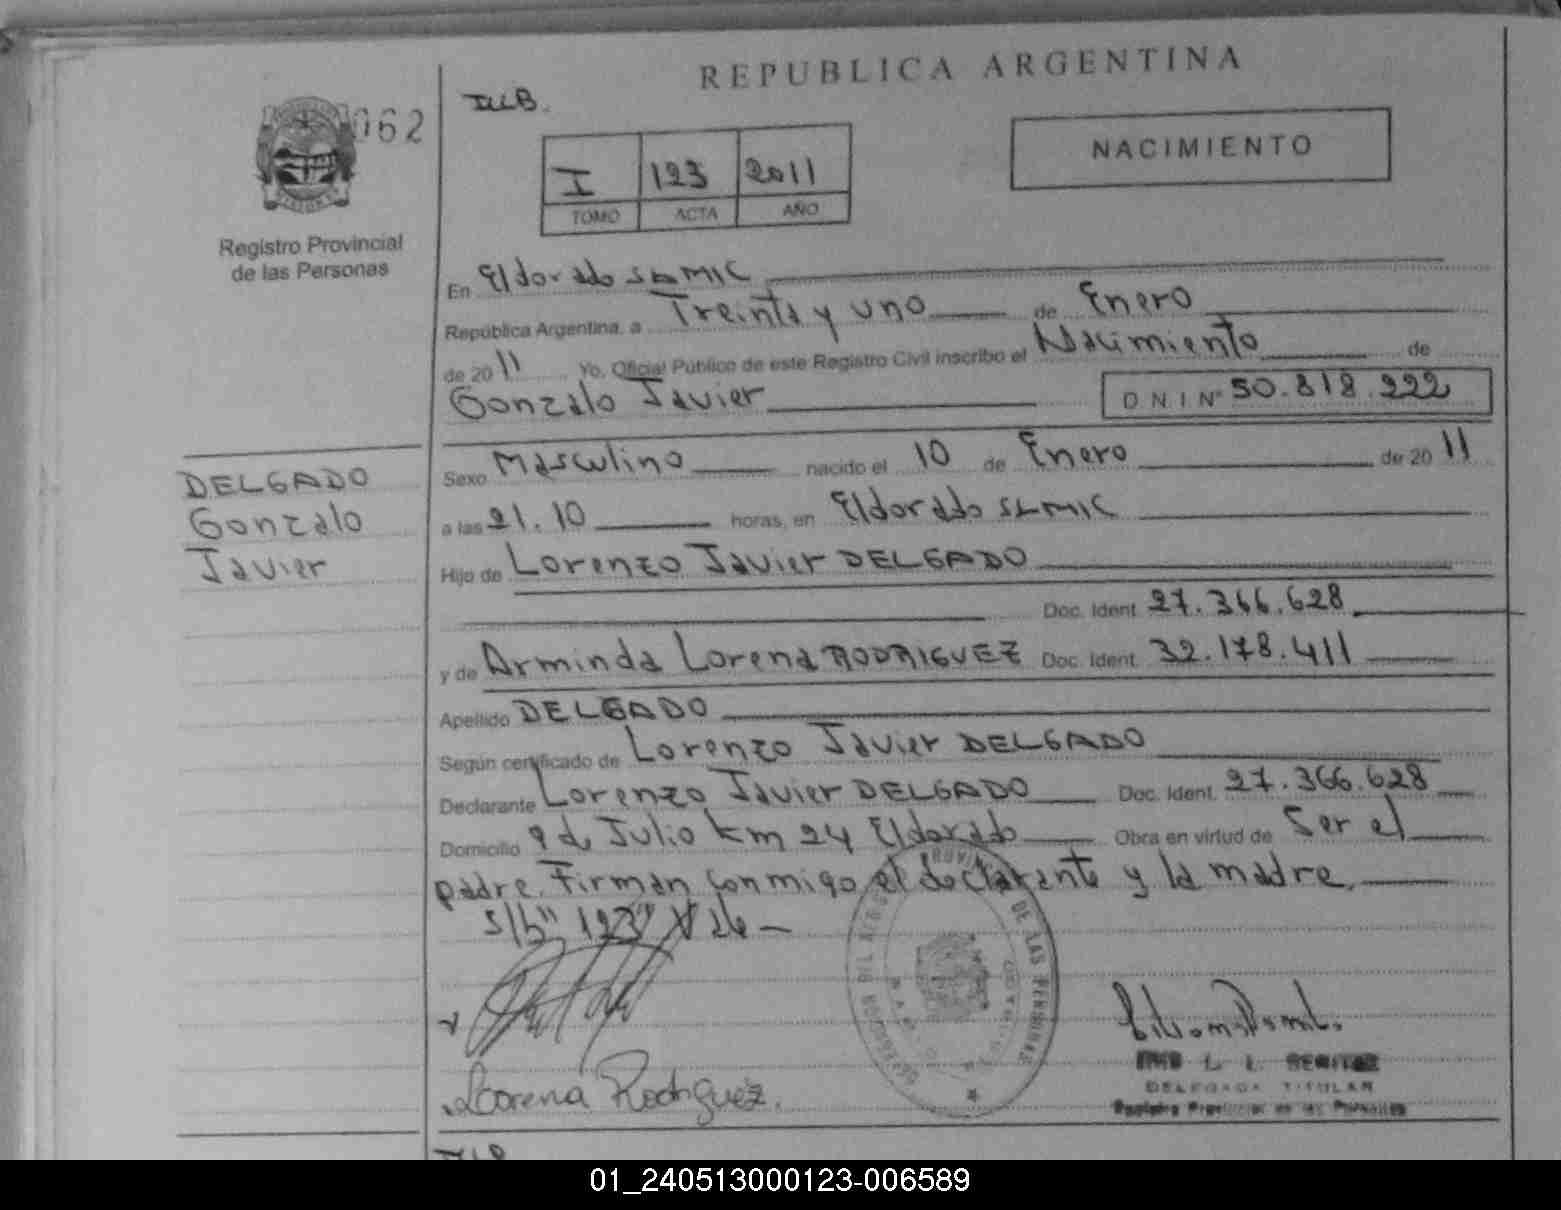 REPUBLICA ARGENTINA
062
I 123 2011
TOMO ACTA AÑO
NACIMIENTO
Registro Provincial
de las Personas
En Eldorado SLMIC
República Argentina, a Treinta y uno de Enero
de 2011 Yo, Oficial Público de este Registro Civil inscribo el Nacimiento de
Gonzalo Javier D.N.I Nº 50.818.222
DELGADO
Gonzalo
Javier
Sexo Masculino nacido el 10 de Enero de 2011
a las 21.10 horas, en Eldorado SLMIC
Hijo de Lorenzo Javier DELGADO
Doc. Ident. 27.366.628
y de Arminda Lorena RODRIGUEZ Doc. Ident. 32.178.411
Apellido DELGADO
Según certificado de Lorenzo Javier DELGADO
Declarante Lorenzo Javier DELGADO Doc. Ident. 27.366.628
Domicilio 9 de Julio km 24 Eldorado Obra en virtud de Ser el
padre. Firman conmigo el declarante y la madre.
S/b "123" Vale
Lorena Rodriguez.
DELEGADA TITULAR
Registro Provincial de las Personas
01_240513000123-006589